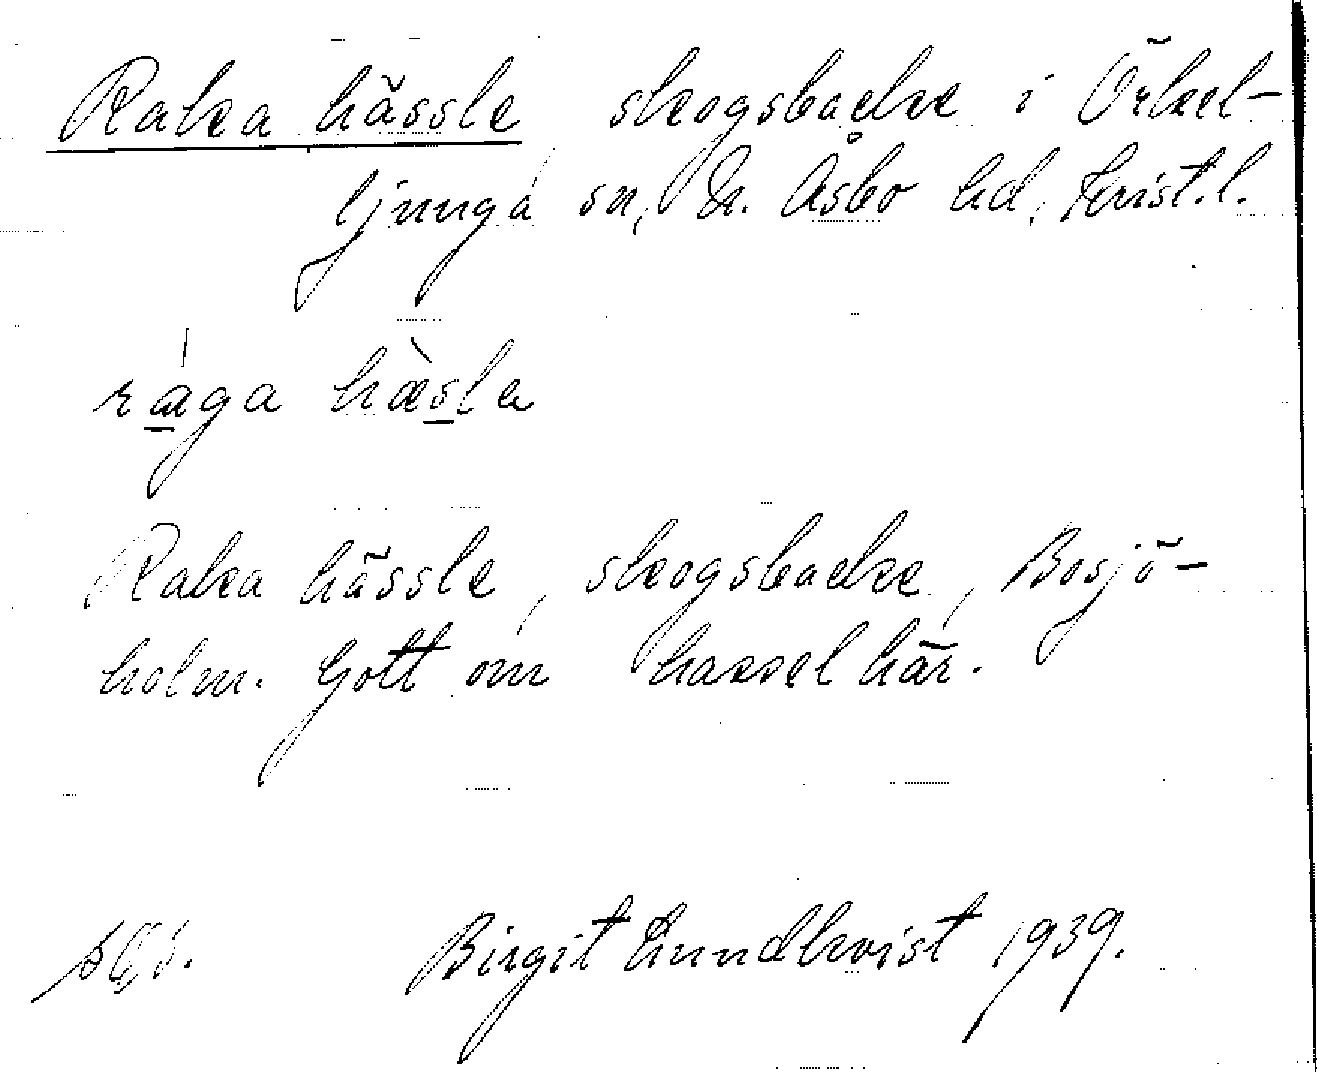 Raka hässle skogsbacke i Örkel-
ljunga sn, N. Åsbo hd, Krist. l.
råga hæsla
Raka hässle, skogsbacke, Bosjö-
holm. Gott om hassel här.
Birgit Lundkvist 1939.